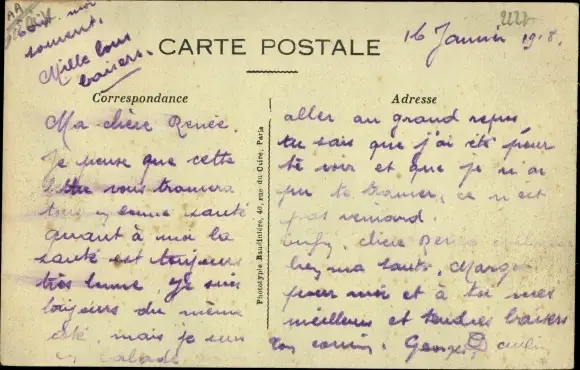 Ecrit moi
souvent.
Mille bons
baisers.
CARTE POSTALE
16 Janvier 1918.
Correspondance
Adresse
Ma chère Renée,
Je pense que cette
vous trouvera
en bonne santé
quant à moi la
santé est toujours
très bonne, Je suis
toujours du même
côté, mais je suis
malade
Phototypie Baudinière, 40, rue du Caire, Paris
aller au grand repos
tu sais que j'ai été pour
te voir et que je n'ai
pu te trouver, ce n'est
pas
chère Renée
pour moi et à toi mes
meilleurs et tendres baisers
Ton cousin. Georges